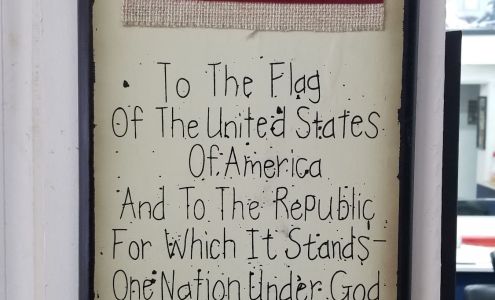 To The Flag
Of The United States
Of America
And To The Republic
For Which It Stands-
One Nation Under God